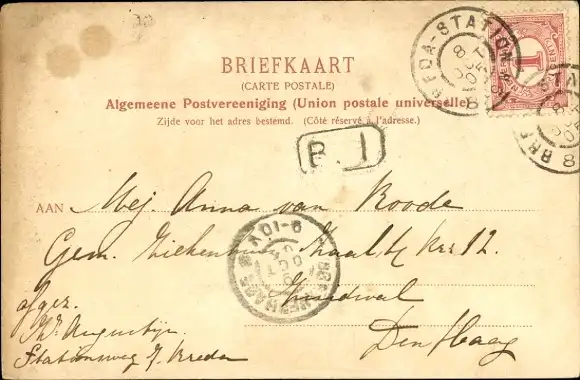 BRIEFKAART
(CARTE POSTALE)
Algemeene Postvereeniging (Union postale universelle)
Zijde voor het adres bestemd. (Côté réservé à l'adresse.)
BREDA-STATION
1
AAN Mej. Anna van Roode
Gem. Ziekenhuis Zaal
Zuidwal
Den Haag
afgez.
Th. Augustijn
Stationsweg 7. Breda